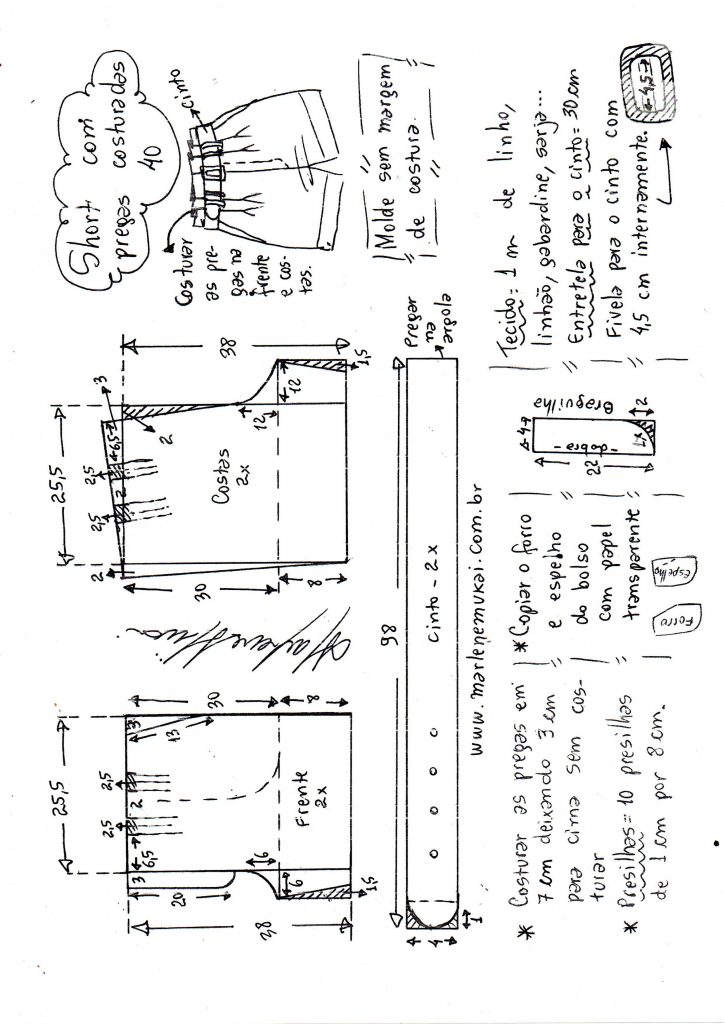 Short com
pregas costuradas
40
cinto
Costurar
as pre-
gas na
frente
e cos-
tas.
Molde sem margem
de costura.
25,5
2,5
2
2,5
6,5
3
2
2
Costas
2x
12
12
38
30
8
1,5
25,5
3
6,5
2,5
2
2,5
3
13
20
6
6
Frente
2x
38
30
8
1,5
98
cinto - 2x
Pregar
na
argola
4
1
www.marlenemukai.com.br
* Costurar as pregas em
7 cm deixando 3 cm
para cima sem cos-
turar
* Presilhas = 10 presilhas
de 1 cm por 8 cm.
* Copiar o forro
e espelho
do bolso
com papel
transparente
Forro
Espelho
4
- dobra -
22
1x
2
Braguilha
Tecido: 1 m de linho,
linhão, gabardine, sarja...
Entretela para o cinto = 30 cm
Fivela para o cinto com
4,5 cm internamente.
4,5